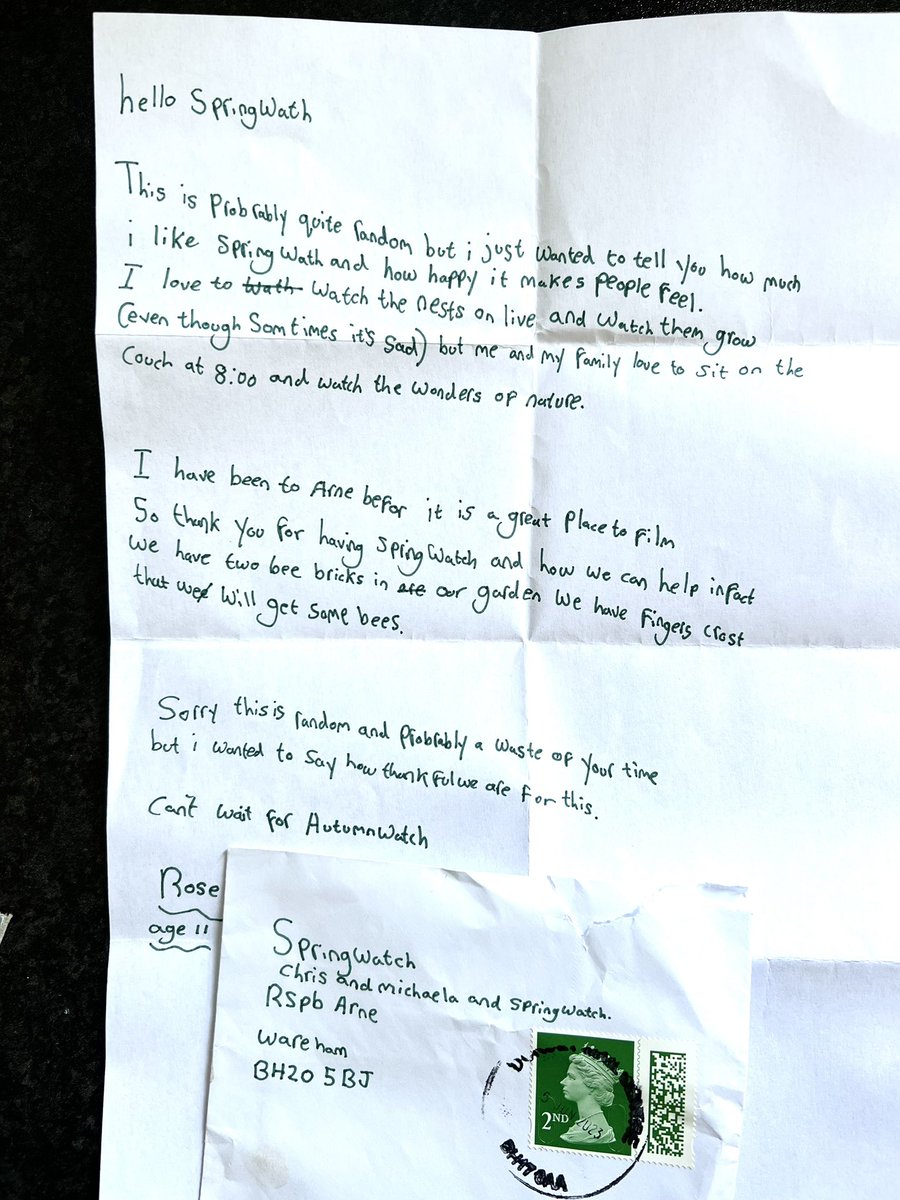 hello SpringWath
This is Probrably quite random but i just wanted to tell you how much
i like SpringWath and how happy it makes people feel.
I love to wath watch the nests on live and watch them grow
(even though Somtimes it's sad) but me and my family love to sit on the
couch at 8:00 and watch the wonders of nature.
I have been to Arne befor it is a great place to film
So thank you for having SpringWatch and how we can help infact
we have two bee bricks in are our garden we have fingers crost
that we will get some bees.
Sorry this is random and probrably a waste of your time
but i wanted to say how thankful we are for this.
Can't wait for AutumnWatch
Rose
age 11
SpringWatch
Chris and michaela and springwatch.
RSpb Arne
Wareham
BH20 5BJ
2ND
2023